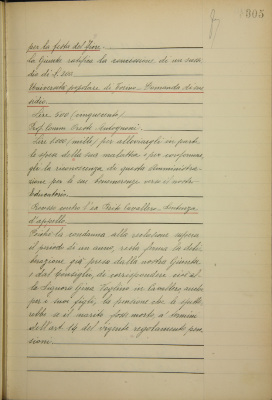 305
per la festa dei fiori.
la Giunta ratifica la concessione di un sussi
dio di £. 300
Università popolare di Torino. Domanda di sus
sidio.
Lire 500 (cinquecento)
Lire 1000 (mille) per alleviargli in parte
le spese della sua malattia e per confermar
gli la riconoscenza di questa Amministra
zione per le sue benemerenze verso il nostro
Educatorio.
Cavallero. Sentenza
d'appello.
Poichè la condanna alla reclusione supera
il periodo di un anno, resta ferma la deli
berazione già presa dalla nostra Giunta
e dal Consiglio, di corrispondere cioè al
la Signora Gina in Cavallero anche
per i suoi figli, la pensione che le spette
rebbe se il marito fosse morto, a termini
dell'art. 14 del vigente regolamento pen
sioni.